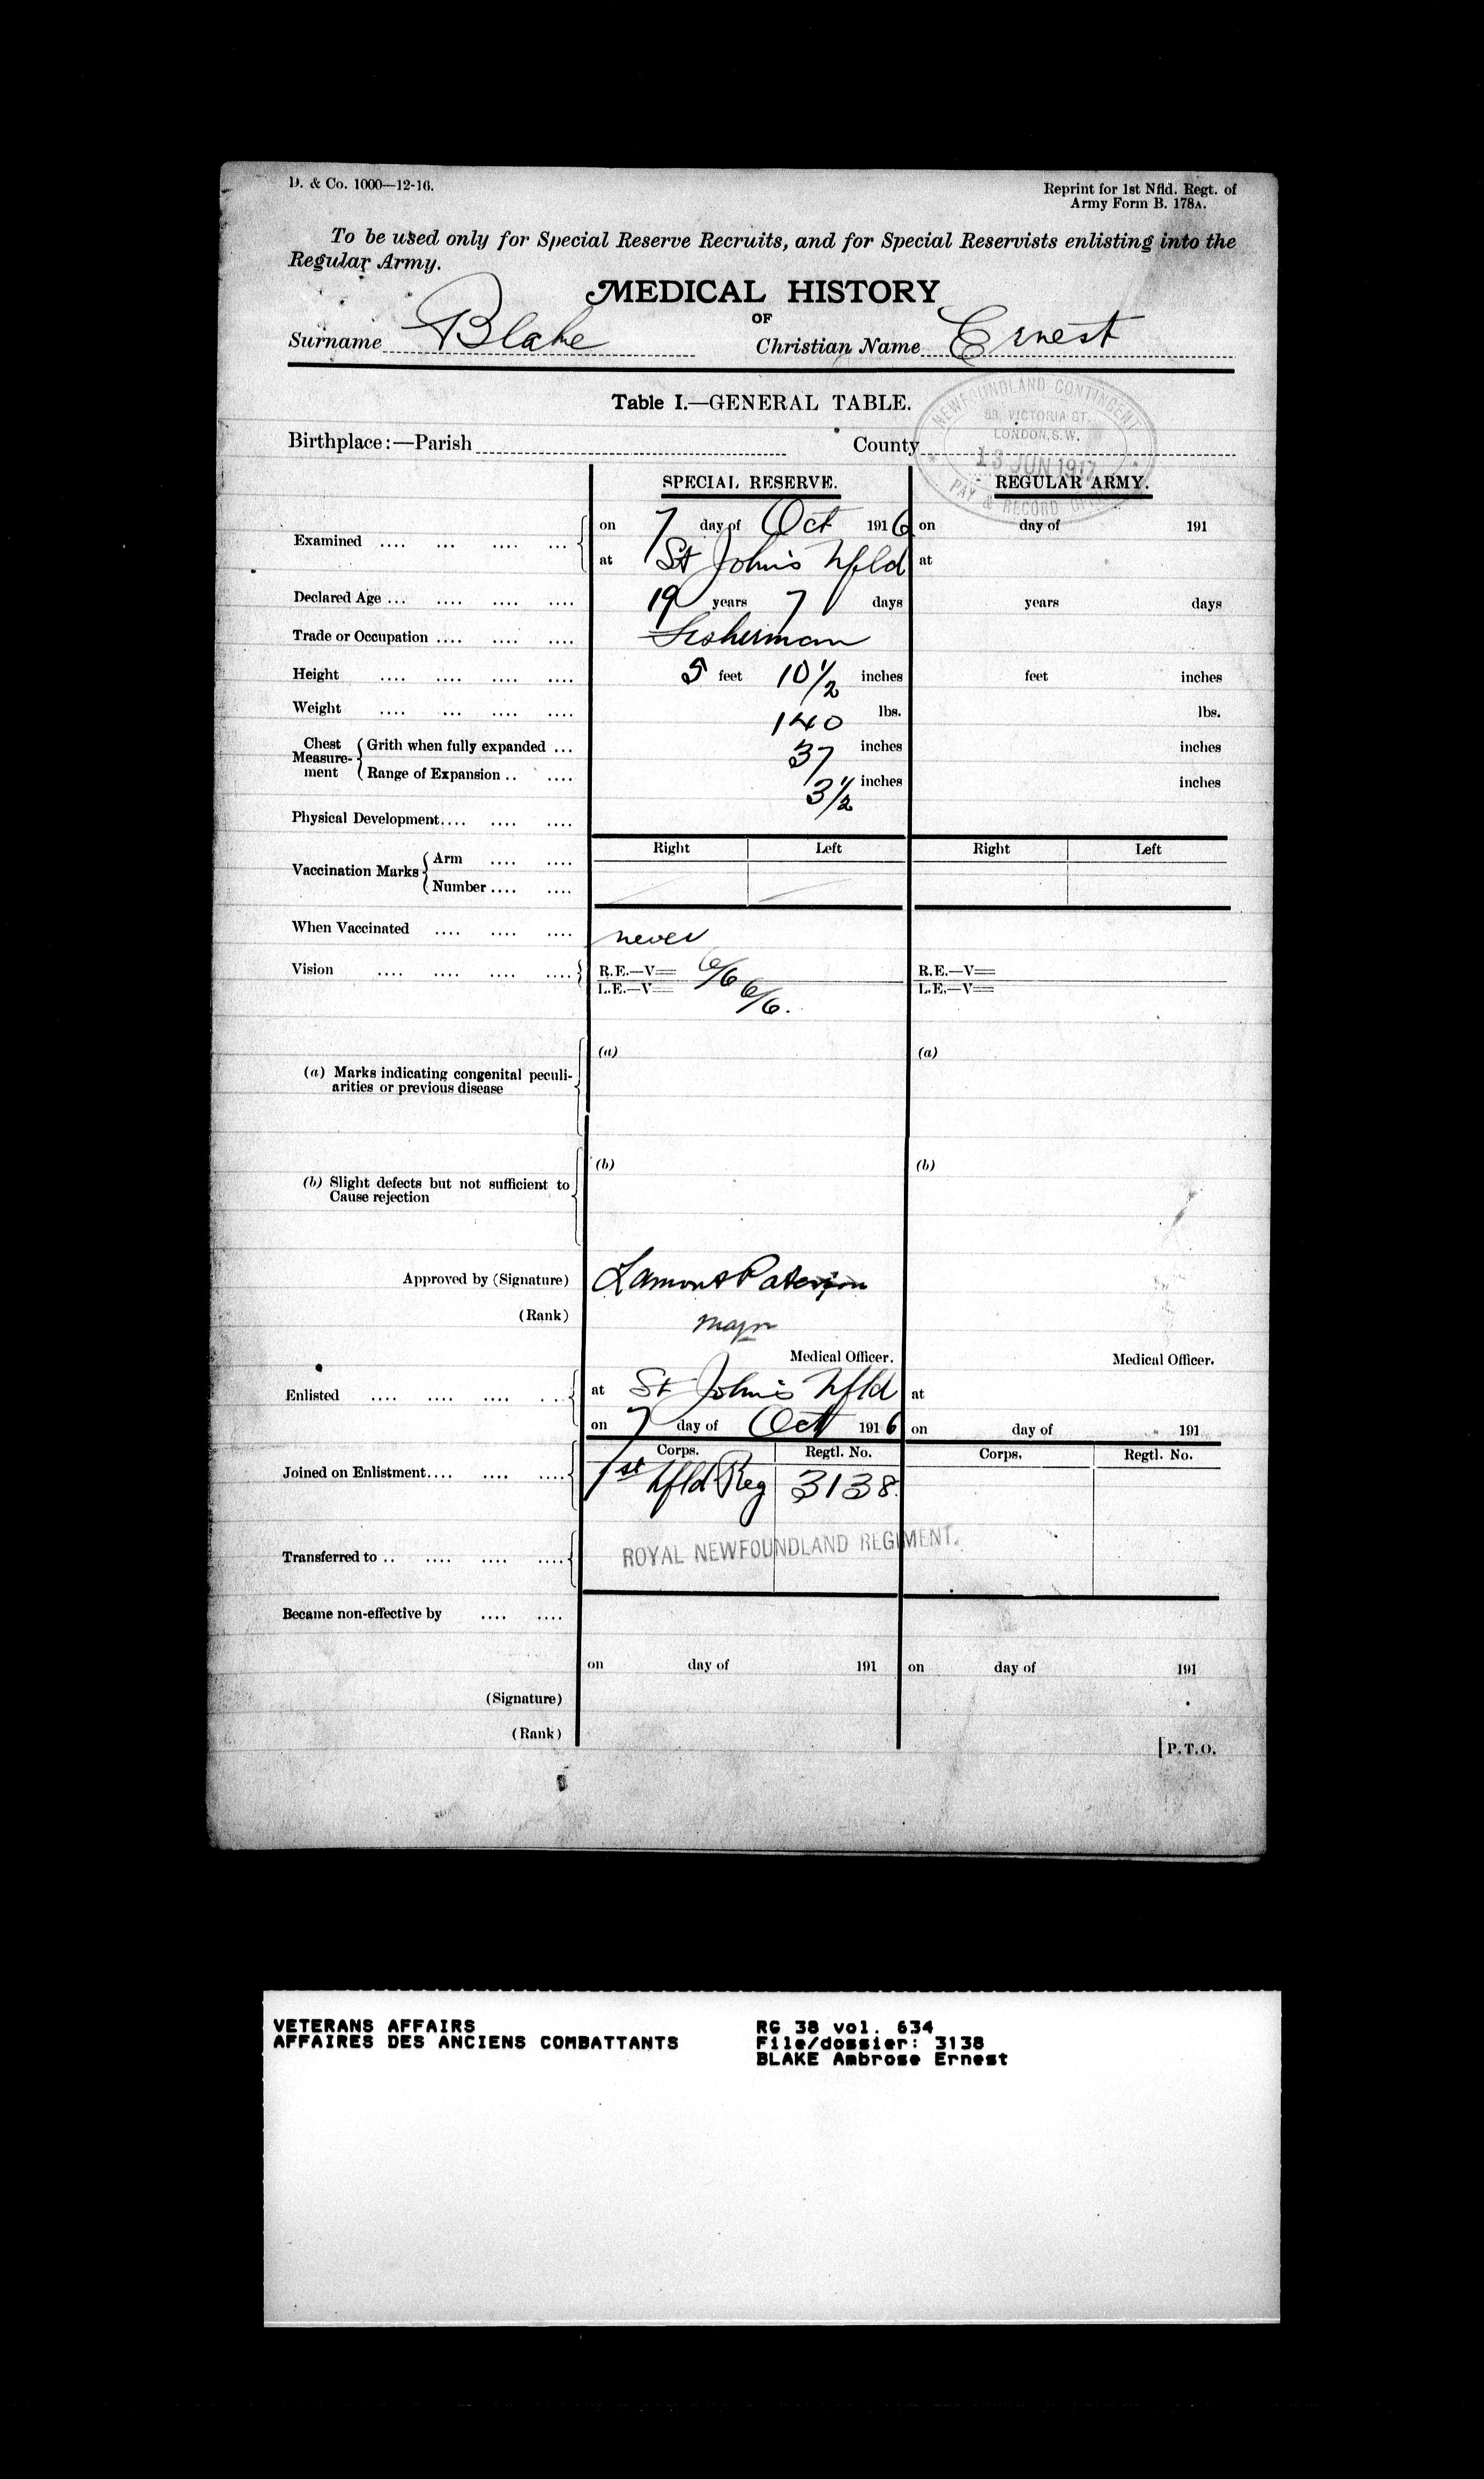 D. & Co. 1000—12-16.
Reprint for 1st Nfld. Regt. of
Army Form B. 178A.
To be used only for Special Reserve Recruits, and for Special Reservists enlisting into the
Regular Army.
MEDICAL HISTORY
OF
Surname Blake Christian Name Ernest
Table I.—GENERAL TABLE.
NEWFOUNDLAND CONTINGENT
58, VICTORIA ST.
LONDON, S.W.
13 JUN 1917
PAY & RECORD
Birthplace:—Parish County
SPECIAL RESERVE. REGULAR ARMY.
Examined .... ... .... ... on 7 day of Oct 1916 on day of 191
at St Johns Nfld at
Declared Age ... .... .... .... 19 years 7 days years days
Trade or Occupation .... .... .... Fisherman
Height .... .... .... .... 5 feet 10½ inches feet inches
Weight .... ... .... .... 140 lbs. lbs.
Chest Measure-ment Grith when fully expanded ... 37 inches inches
Range of Expansion .. .... 3½ inches inches
Physical Development.... .... ....
Right Left Right Left
Vaccination Marks Arm .... ....
Number .... ....
When Vaccinated .... .... .... never
Vision .... .... .... .... R.E.—V= 6/6 R.E.—V=
L.E.—V= 6/6. L.E.—V=
(a) Marks indicating congenital peculi-
arities or previous disease
(a) (a)
(b) Slight defects but not sufficient to
Cause rejection
(b) (b)
Approved by (Signature) Lamont Paterson
(Rank) Major
Medical Officer. Medical Officer.
Enlisted .... .... .... ... at St Johns Nfld at
on 7 day of Oct 1916 on day of 191
Corps. Regtl. No. Corps. Regtl. No.
Joined on Enlistment.... .... .... 1st Nfld Reg 3138
Transferred to .. .... .... .... ROYAL NEWFOUNDLAND REGIMENT.
Became non-effective by .... ....
on day of 191 on day of 191
(Signature)
(Rank)
[P.T.O.
VETERANS AFFAIRS RG 38 vol. 634
AFFAIRES DES ANCIENS COMBATTANTS File/dossier: 3138
BLAKE Ambrose Ernest